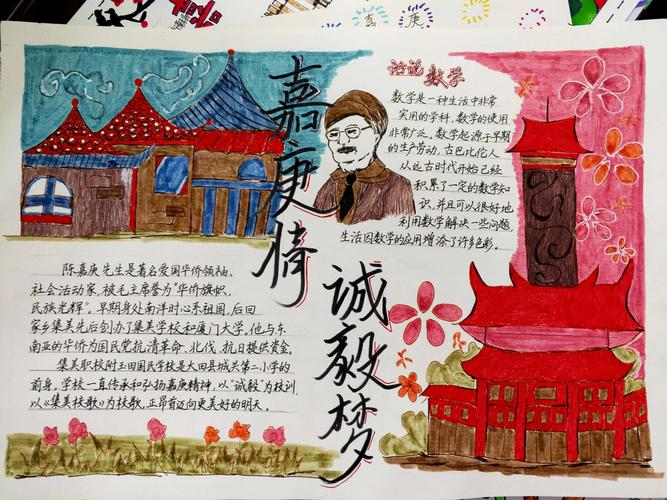 嘉庚情
诚毅梦
话说数学
数学是一种生活中非常
实用的学科,数学的使用
非常广泛,数学起源于早期
的生产劳动,古巴比伦人
从远古时代开始已经
积累了一定的数学知
识,并且可以很好地
利用数学解决一些问题,
生活因数学的应用增添了许多色彩。
陈嘉庚先生是著名爱国华侨领袖、
社会活动家,被毛主席誉为“华侨旗帜,
民族光辉”。早期身处南洋时心系祖国,后回
家乡集美先后创办了集美学校和厦门大学,他与东
南亚的华侨为国民党抗清革命、北伐、抗日提供资金。
集美职校附王田国民学校是大田县城关第二小学的
前身,学校一直传承和弘扬嘉庚精神,以“诚毅”为校训,
以《集美校歌》为校歌,正昂首迈向更美好的明天。
嘉
庚